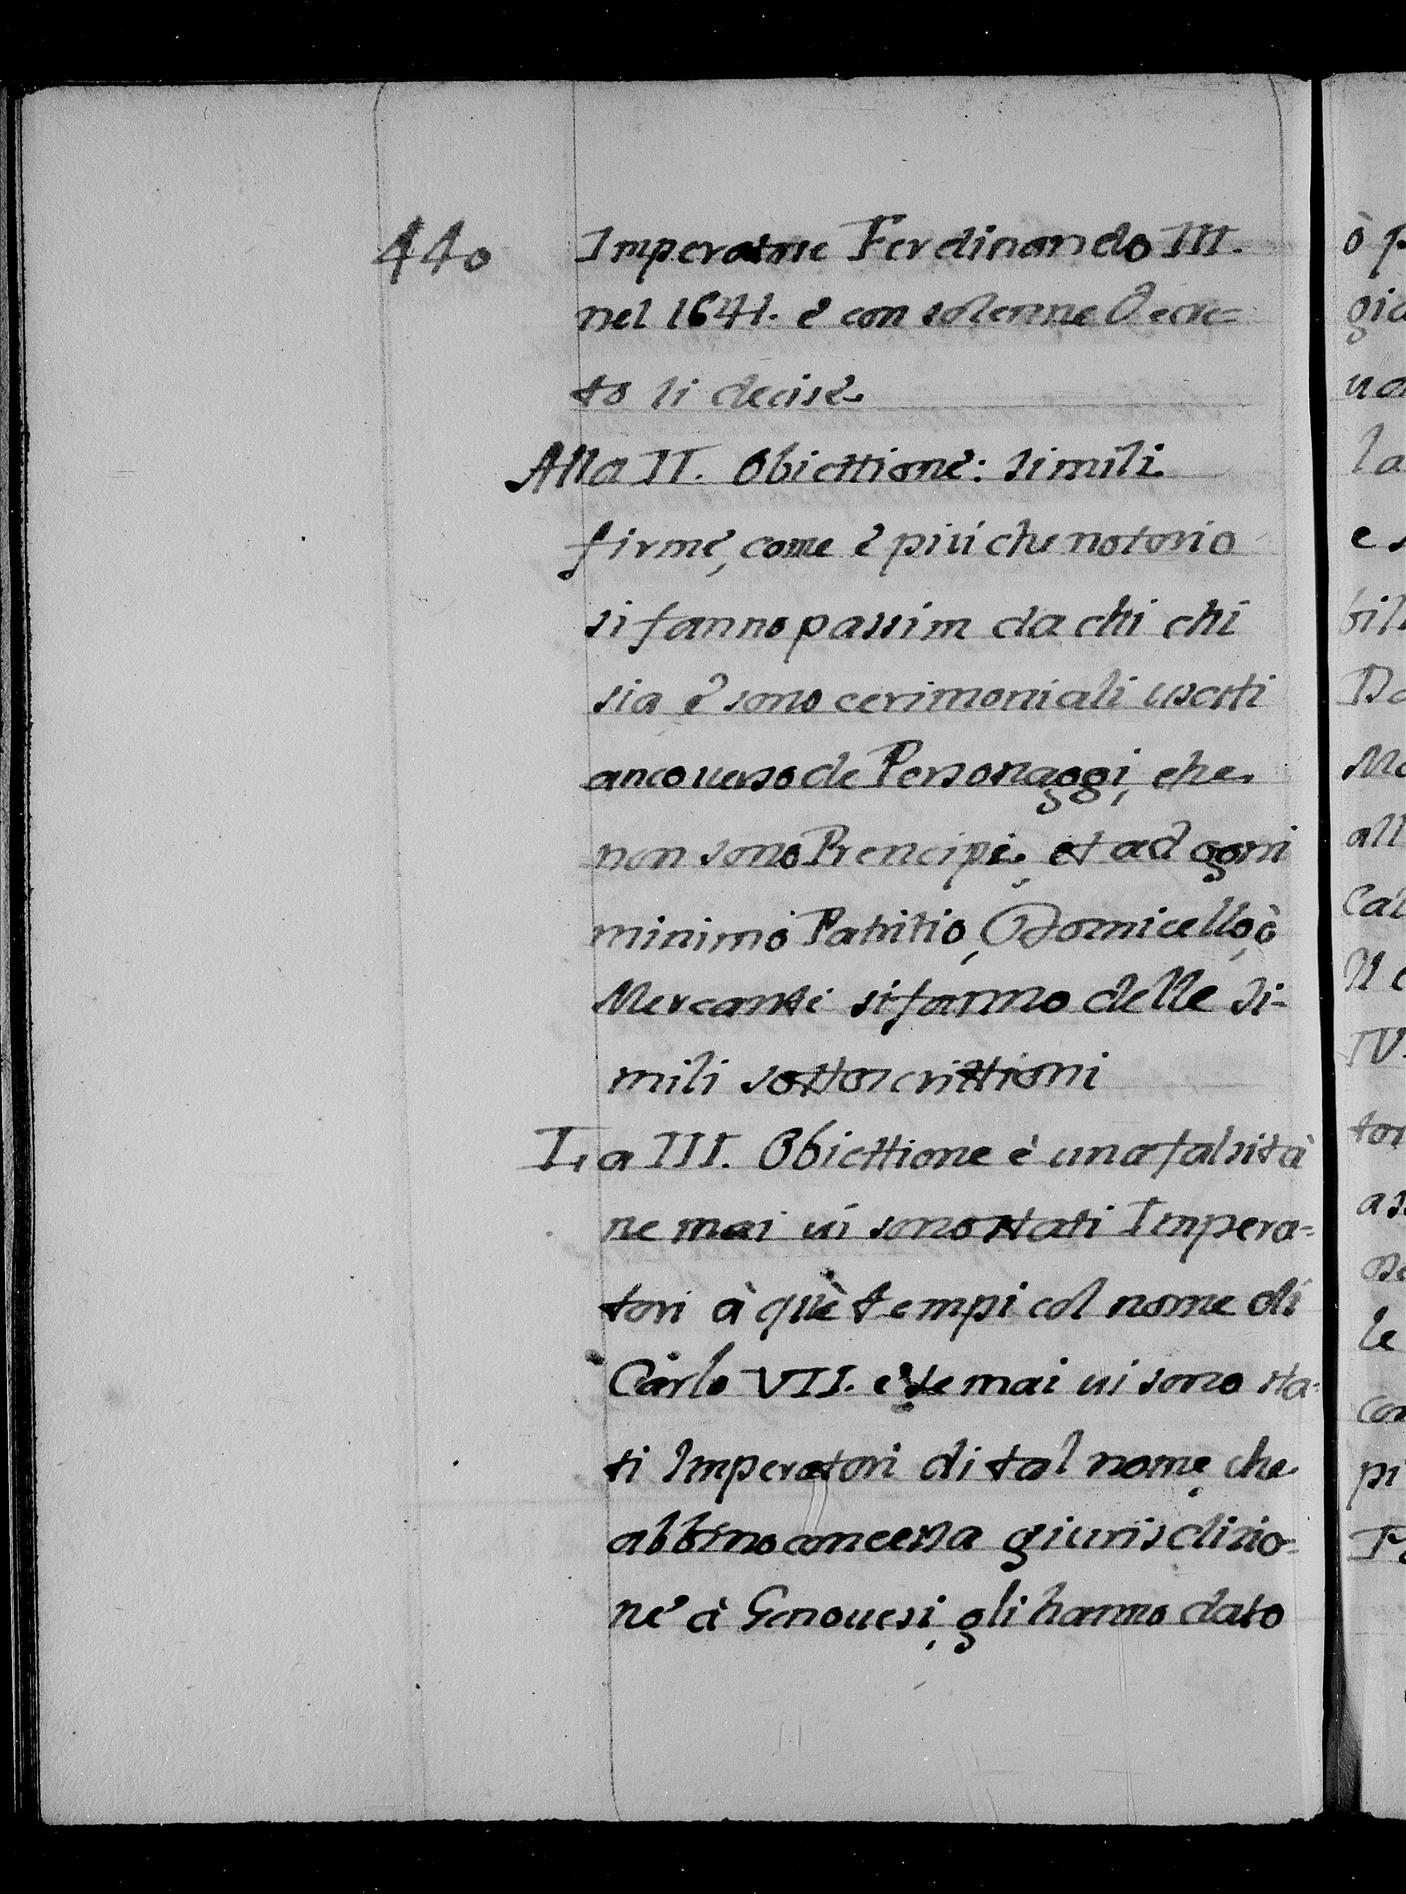 440
Imperatore Ferdinando III.
nel 1641. è con solenne Decre=
to li decisè.
Alla II. Obiettionè: simili
firmè, come è più che notorio
si fanno passim da chi chi
sia è sono cerimoniali usati
anco verso de Personaggi, che
non sono Prencipi, et ad ogni
minimo Patritio, Domicello, ò
Mercanti si fanno delle si=
mili sottoscrittioni
La III. Obiettione è una falsità
ne mai ui sono stati Impera=
tori à què tempi col nome di
Carlo VII. è se mai ui sono sta=
ti Imperatori di tal nome, che
abbino concessa giurisditio=
nè à Genouesi, gli hanno dato